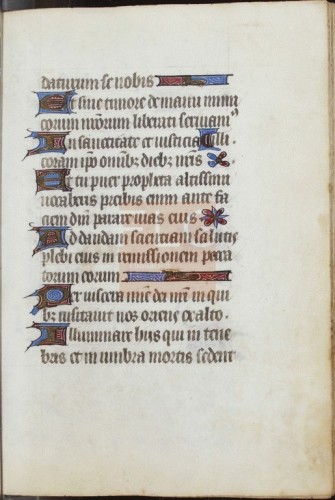 daturum se nobis
Ut sine timore de manu inimi
corum nostrorum liberati serviam9
In sanctitate et iusticia
coram ipso omnibus diebus nostris
Et tu puer propheta altissimi
vocaberis preibis enim ante fa
ciem domini parare vias eius
Ad dandam scientiam salutis
plebi eius in remissionem pecca
torum eorum
Per viscera misericordie dei nostri in qui
bus visitavit nos oriens ex alto.
Illuminare hiis qui in tene
bras et in umbra mortis sedent